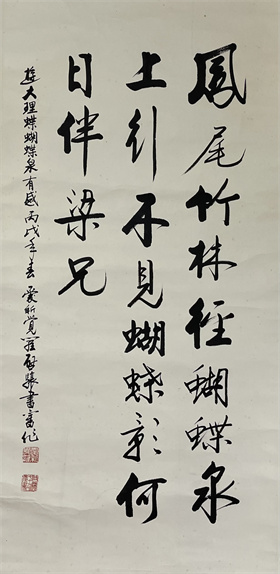 鳳尾竹林径蝴蝶泉
上引不見蝴蝶影何
日伴梁兄
遊大理蝶蝴蝶泉有感丙戌年春愛新覺羅啟驤書畫作